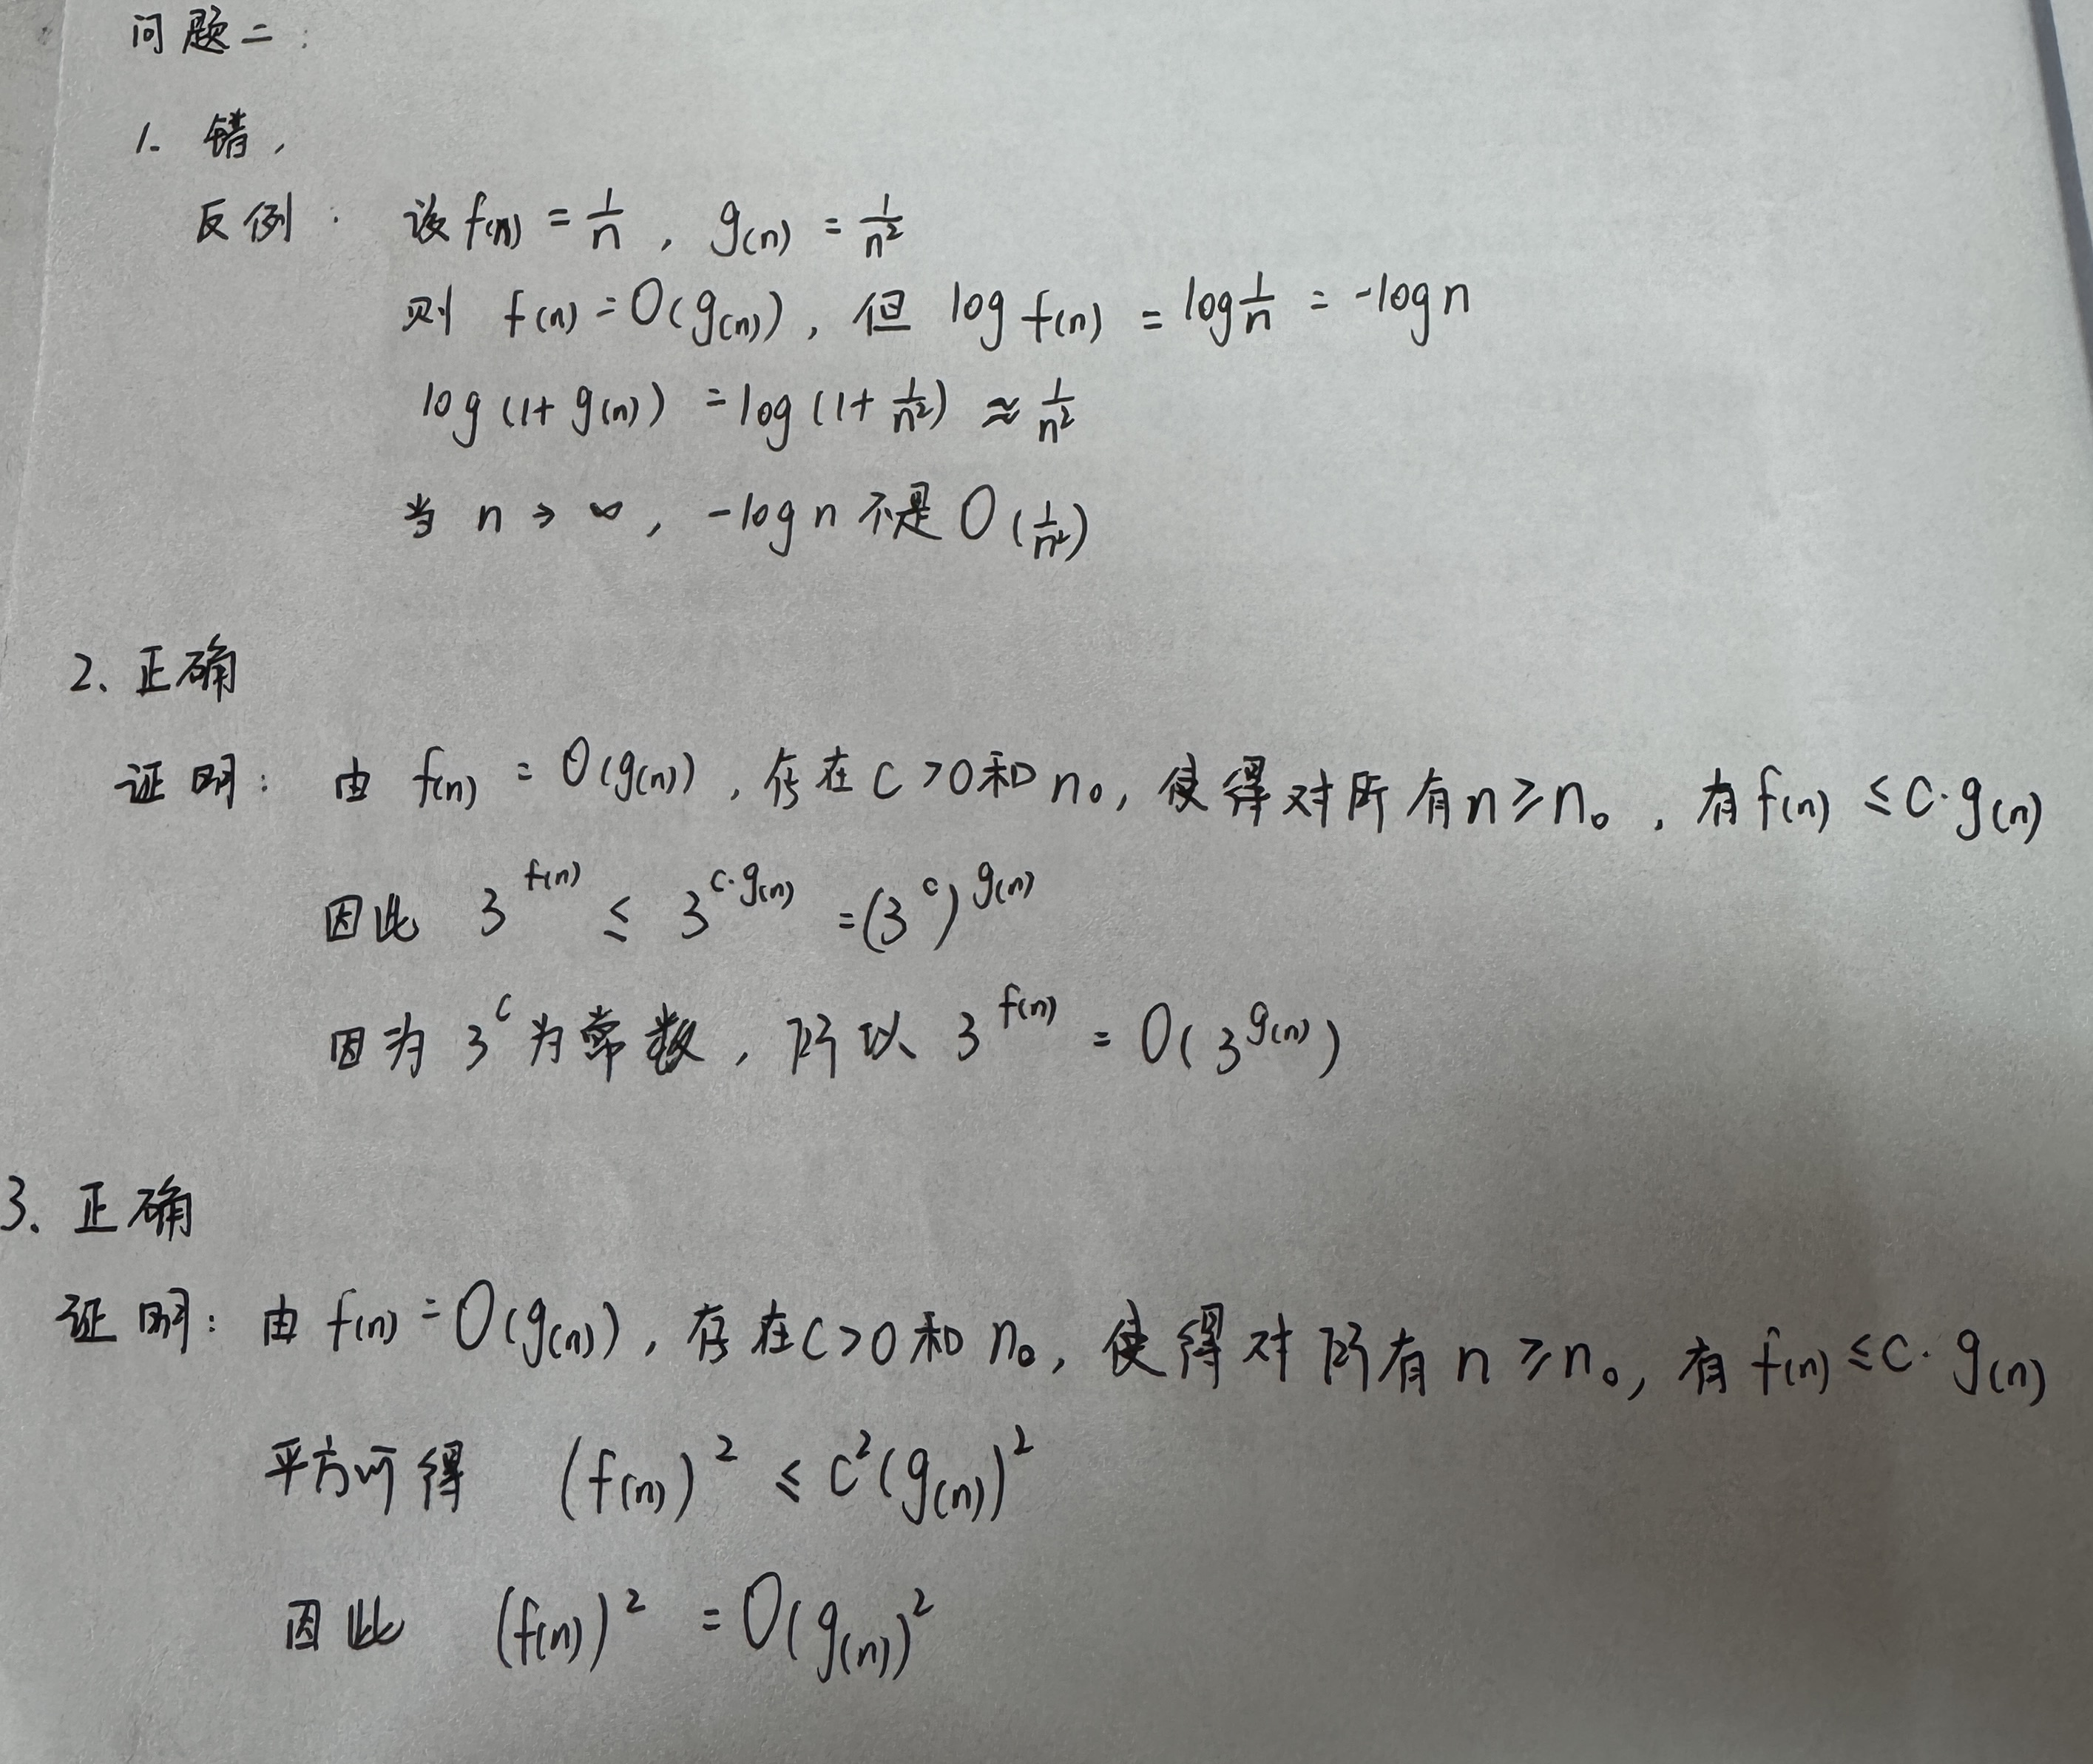 问题二:
1. 错,
反例: 设 f(n) = 1/n , g(n) = 1/n²
则 f(n) = O(g(n)), 但 log f(n) = log 1/n = -log n
log (1+ g(n)) = log (1+ 1/n²) ≈ 1/n²
当 n → ∞, -log n 不是 O(1/n²)
2、正确
证明: 由 f(n) = O(g(n)), 存在 C>0 和 n₀, 使得对所有 n≥n₀, 有 f(n) ≤ C·g(n)
因此 3^f(n) ≤ 3^(c·g(n)) = (3^c)^g(n)
因为 3^c 为常数, 所以 3^f(n) = O(3^g(n))
3、正确
证明: 由 f(n) = O(g(n)), 存在 C>0 和 n₀, 使得对所有 n≥n₀, 有 f(n) ≤ C·g(n)
平方可得 (f(n))² ≤ C²(g(n))²
因此 (f(n))² = O(g(n))²